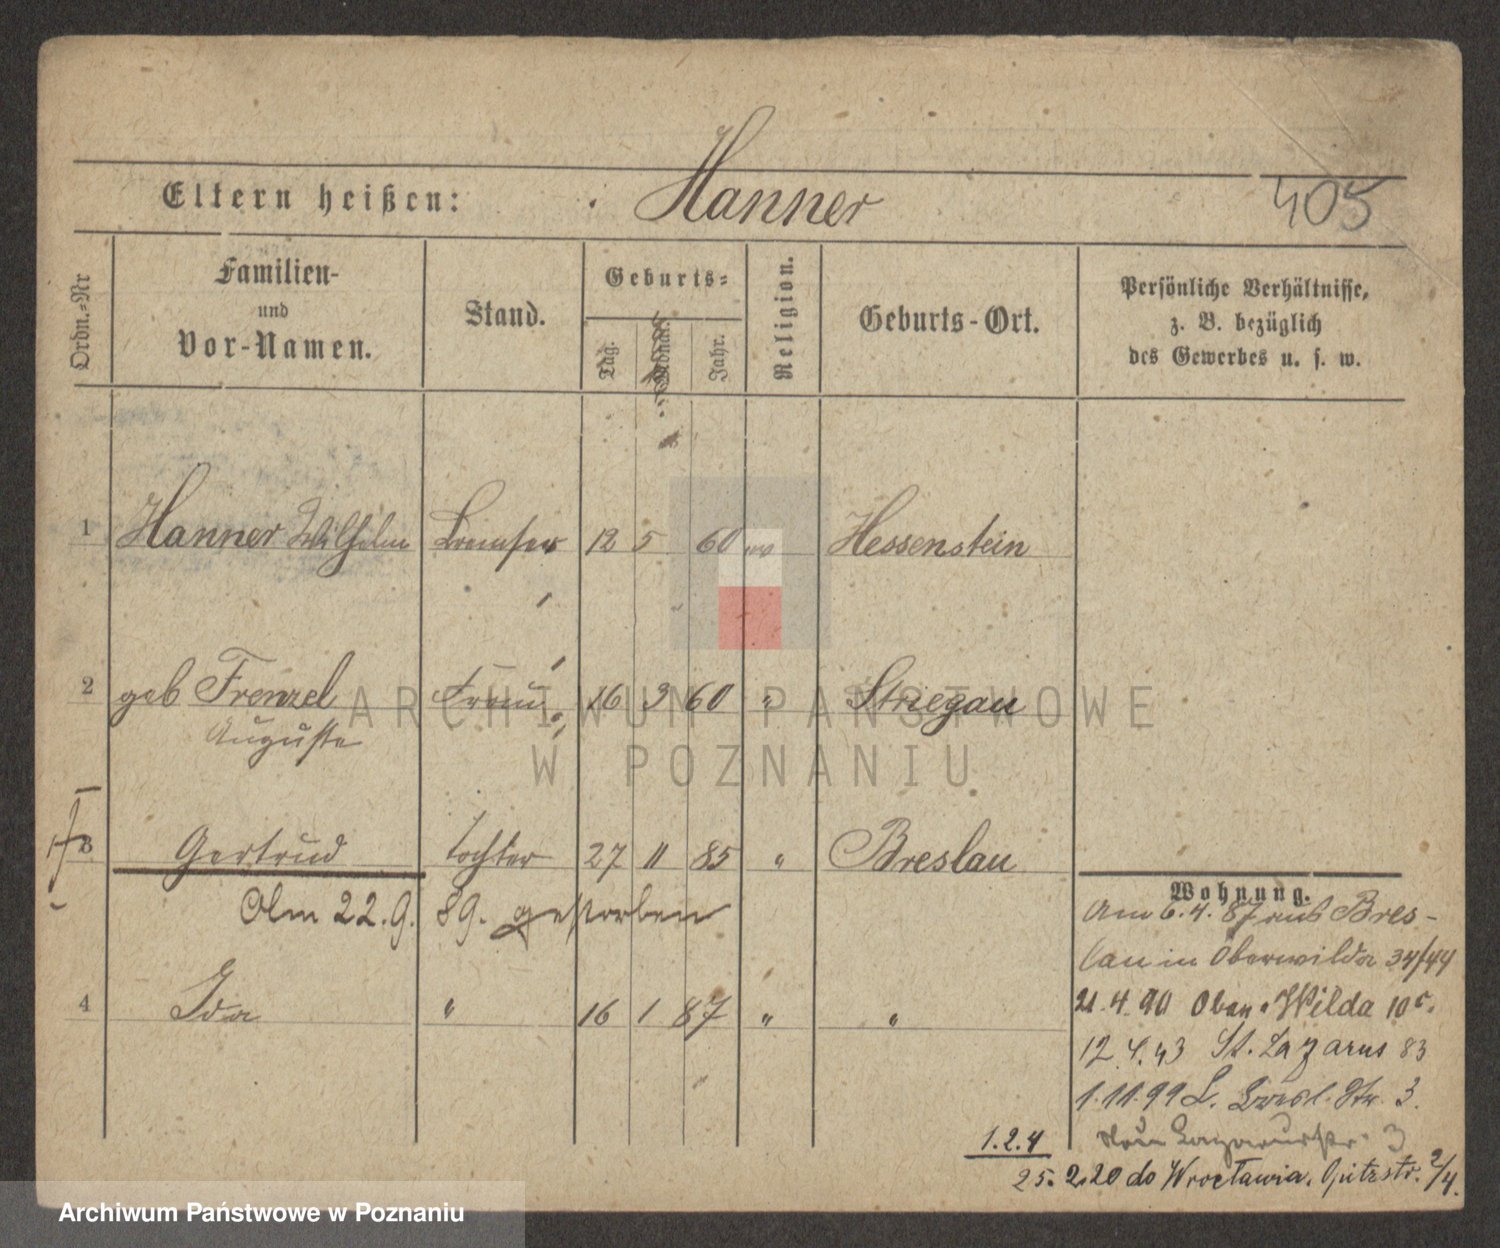 Eltern heißen: Hanner 405
Ordn.=Nr
Familien-
und
Vor-Namen.
Stand.
Geburts=
Tag.
Monat.
Jahr.
Religion.
Geburts-Ort.
Persönliche Verhältnisse,
z. B. bezüglich
des Gewerbes u. s. w.
1 Hanner Wilhelm Bremser 12 5 60 ev Hessenstein
2 geb Frenzel Frau 16 3 60 " Striegau
Auguste
3 Gertrud Tochter 27 11 85 " Breslau
Am 22.9. 89. gestorben
4 Ida " 16 1 87 " "
Wohnung.
Am 6.4.87 aus Bres-
lau in Oberwilda 34/44
21.4.90 Ober-Wilda 10
12.4.93 St. Lazarus 83
1.11.99 L. Bresl. Str. 3.
Lazarusstr. 3
1.2.4
25.2.20 do Wrocławia. Opitzstr. 2/4.
ARCHIWUM PAŃSTWOWE
W POZNANIU
Archiwum Państwowe w Poznaniu